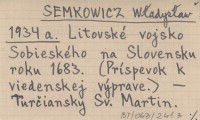 SEMKOWICZ Władysław
1934 a. Litovské vojsko
Sobieského na Slovensku
roku 1683. (Príspevok k
viedenskej výprave.) —
Turčiansky Sv. Martin.